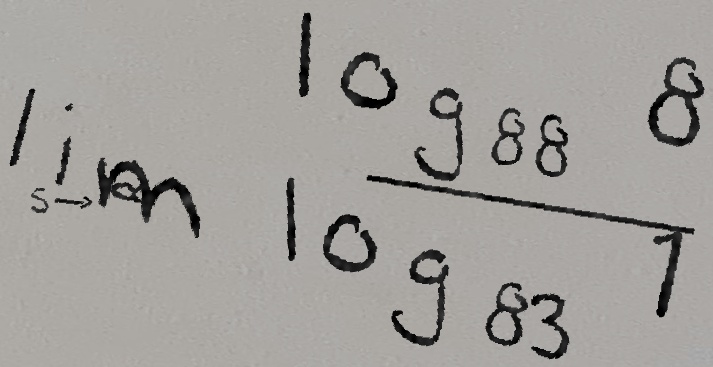 lim log₈₈ 8
s→
log₈₃ 7